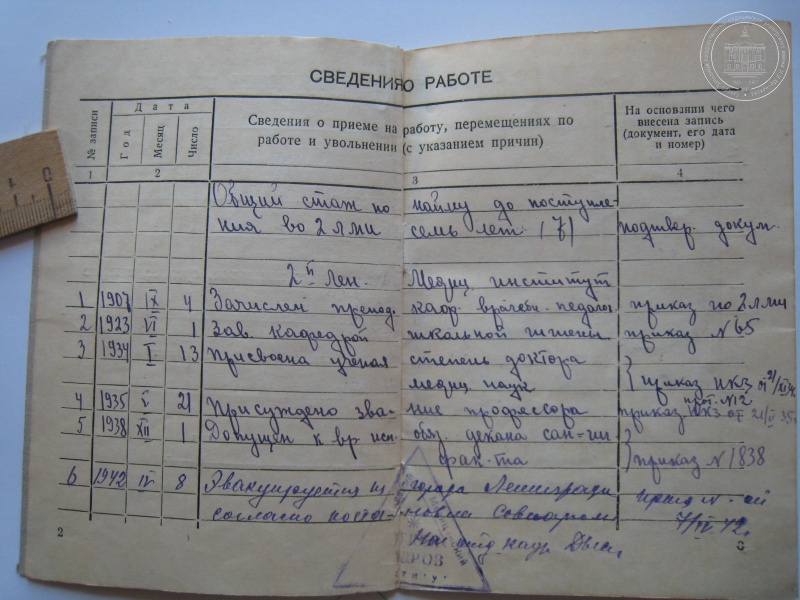 СВЕДЕНИЯ О РАБОТЕ
№ записи
Дата
Год
Месяц
Число
Сведения о приеме на работу, перемещениях по
работе и увольнении (с указанием причин)
На основании чего
внесена запись
(документ, его дата
и номер)
1 2 3 4
Общий стаж по найму до поступле-
ния во 2 лми семь лет (7) подтвер. докум.
2й Лен. Медиц. институт
1 1907 IX 4 Зачислен препод. каф. врачебн. педагог приказ по 2 лми
2 1923 VI 1 Зав. Кафедрой школьной гигиены приказ № 65
3 1934 I 13 Присвоена ученая степень доктора
медиц. наук приказ НКЗ от
4 1935 V 21 Присуждено зва- ние профессора приказ НКЗ от 21/V 35г.
5 1938 XII 1 Допущен к вр. исп. обяз. декана сан-гиг
фак-та приказ № 1838
6 1942 IV 8 Эвакуируется из города Ленинграда
согласно поста- новл. Совнарком 7/IV 42г.
Нач.
2
3